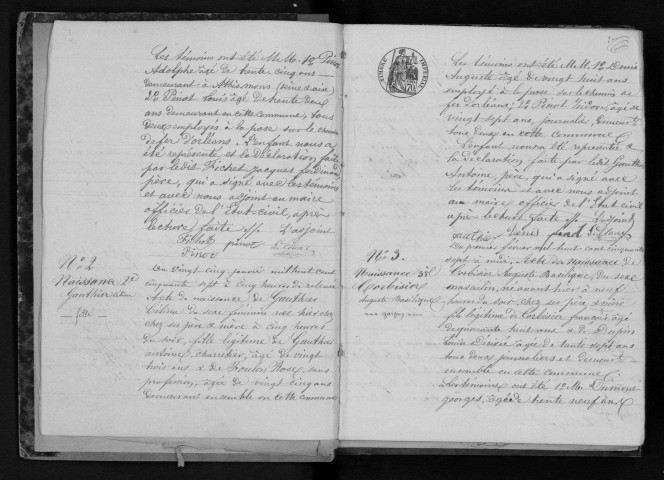 Les témoins ont été M.M. 1º Pinot
Adolphe âgé de trente cinq ans
demeurant à Athismons (Seine et oise
2º Pinot Louis âgé de trente deux
ans demeurant en cette commune, tous
deux employés à la pose sur le chemin
de fer d'orléans. L'enfant nous a
été représenté et la Déclaration faite
par ledit Fichet Jacques ferdinand
père, qui a signé avec les témoins
et avec nous adjoint au maire
officier de l'Etat-civil, après
lecture faite. L'adjoint
Fichet pinot
Pinot
Nº 2
Naissance 2e
Gauthier Celina
fille
Du vingt cinq janvier mil huit cent
cinquante sept à cinq heures de relevée
Acte de naissance de Gauthier
Celina de sexe féminin née hier chez
chez ses père & mère à cinq heures
du soir, fille légitime de Gauthier
antoine, charretier, âgé de vingt
trois ans & de Rose, sans
profession, âgée de vingt cinq ans
demeurant ensemble en cette commune.
TIMBRE IMPERIAL
Les témoins ont été M.M. 1º Denis
Auguste âgé de vingt huit ans
employé à la pose sur le chemin de
fer d'orléans; 2º Pinot Isidore, âgé de
vingt sept ans, journalier, demeurant
tous deux en cette commune.
L'enfant nous a été représentée et
la Déclaration faite par ledit Gauthier
Antoine, père, qui a signé avec
les témoins et avec nous adjoint
au maire officier de l'Etat civil
après lecture faite. L'adjoint
gauthier Denis pinot
Nº 3.
Naissance 3e
Corbisier
Auguste Basilique
Du premier février mil huit cent cinquante
sept à midi, Acte de naissance de
Corbisier Auguste Basilique, du sexe
masculin, né avant hier à neuf
heures du soir, chez ses père & mère
fils légitime de Corbisier françois âgé
de quarante huit ans & de Dupin
Louise Désirée âgée de trente sept ans
tous deux journaliers et demeurant
ensemble en cette commune.
Les témoins ont été 1º M. Dumont
georges, âgé de trente neuf ans